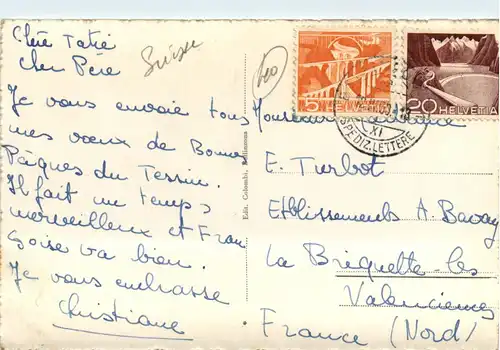 Chère Tatie
Cher Père
Je vous envoie tous
mes vœux de Bonnes
Pâques du Tessin.
Il fait un temps
merveilleux et Fran
çoise va bien.
Je vous embrasse
Christiane
Suisse
Edit. Colombi, Bellinzona
5 HELVETIA
20 HELVETIA
XI
SPEDIZ. LETTERE
Monsieur
E. Turbot
Etablissements A. Bavay
La Briquette-les
Valenciennes
France (Nord)